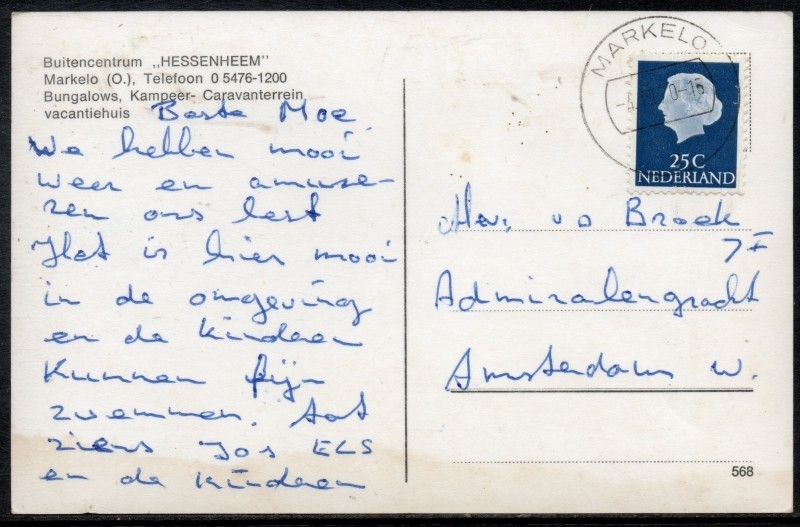 Buitencentrum „HESSENHEEM"
Markelo (O.), Telefoon 0 5476-1200
Bungalows, Kampeer- Caravanterrein
vacantiehuis
Beste Moe
We hebben mooi
weer en amuse-
ren ons best
Het is hier mooi
in de omgeving
en de kinderen
kunnen fijn
zwemmen. tot
ziens Jos ELS
en de kinderen
MARKELO
25C
NEDERLAND
v d Broek
7 I
Admiralengracht
Amsterdam W.
568